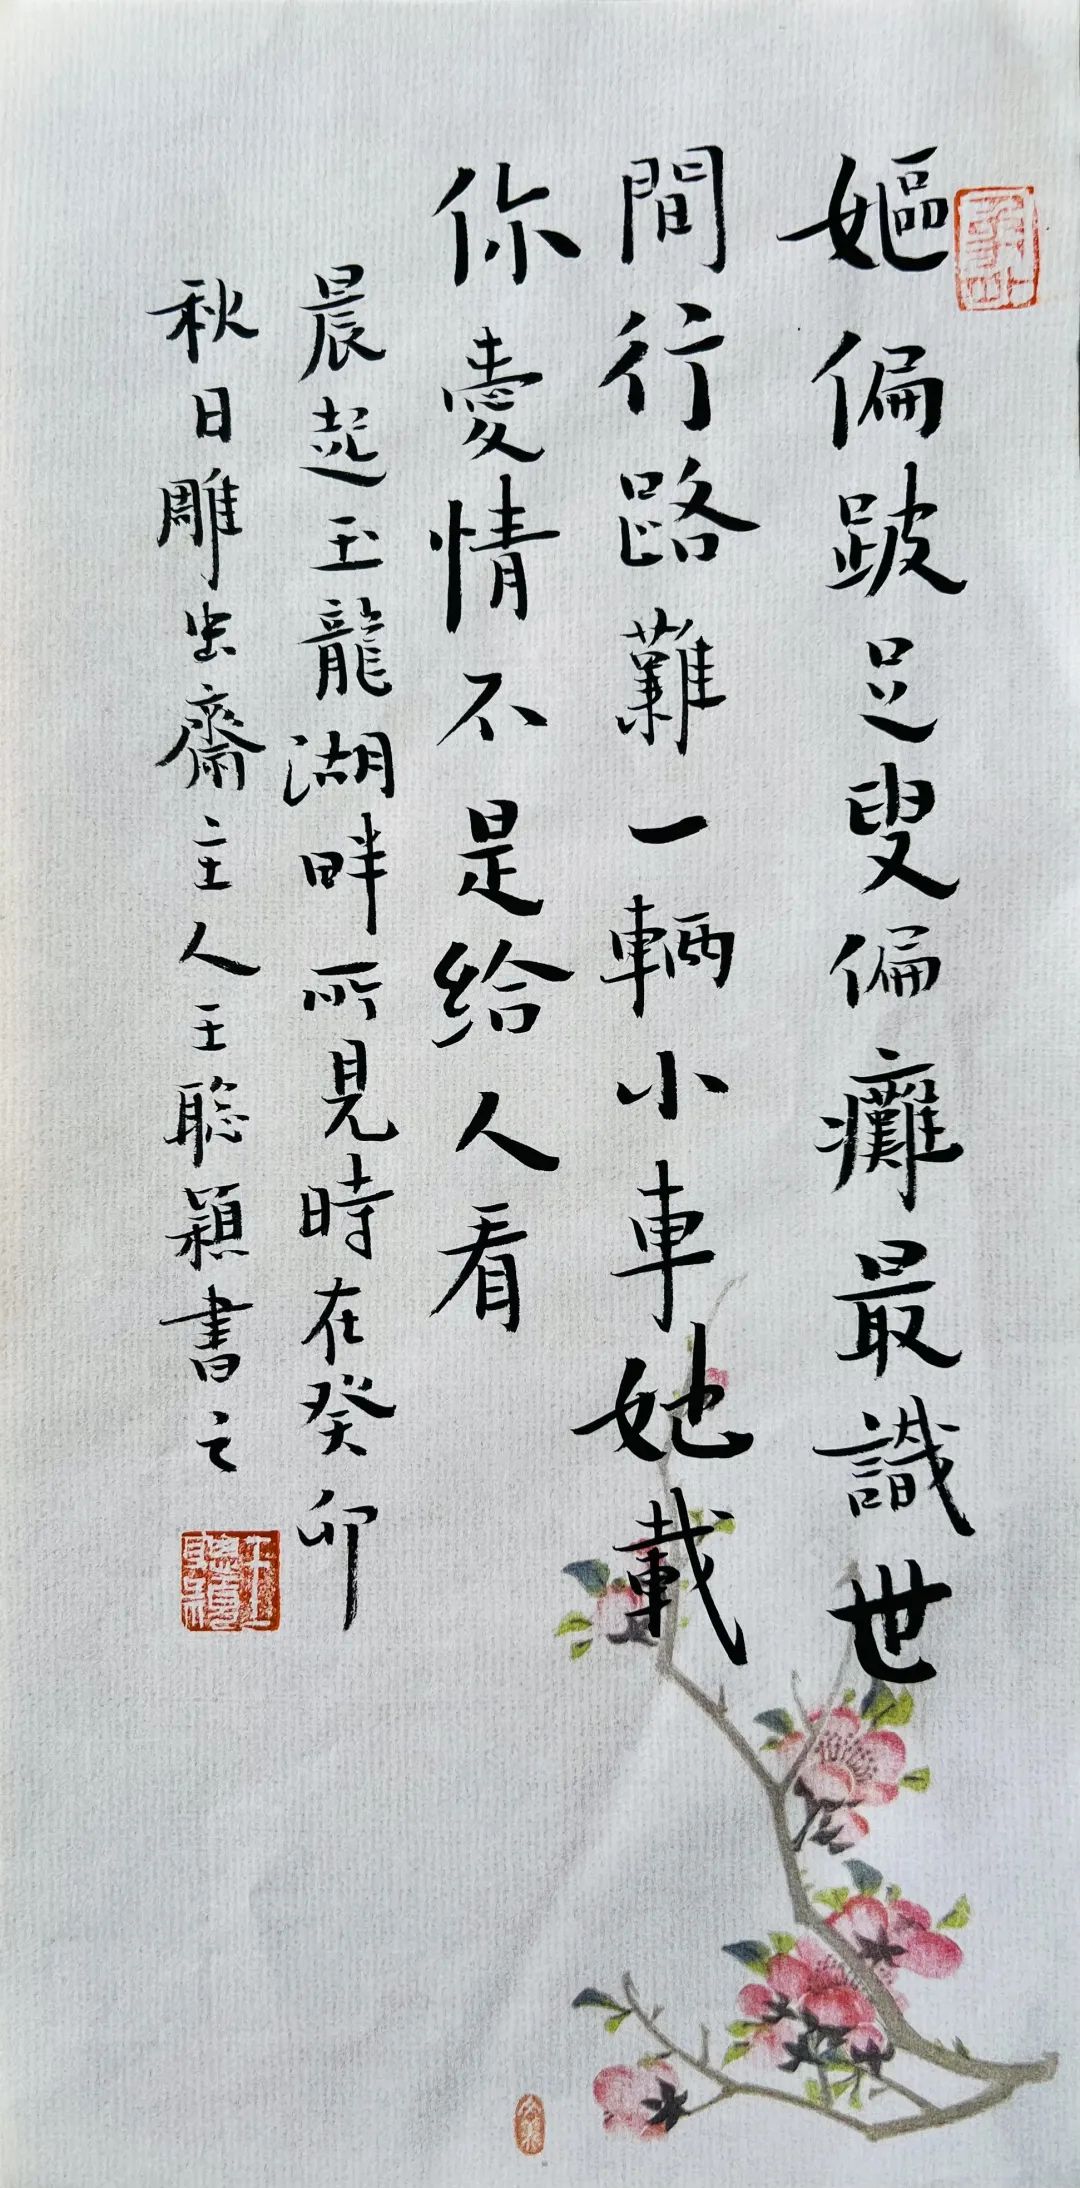 嫗偏跛足叟偏癱最識世
間行路難一輛小車她載
你愛情不是給人看
晨起玉龍湖畔所見時在癸卯
秋日雕虫齋主人王聰穎書之
王聰穎